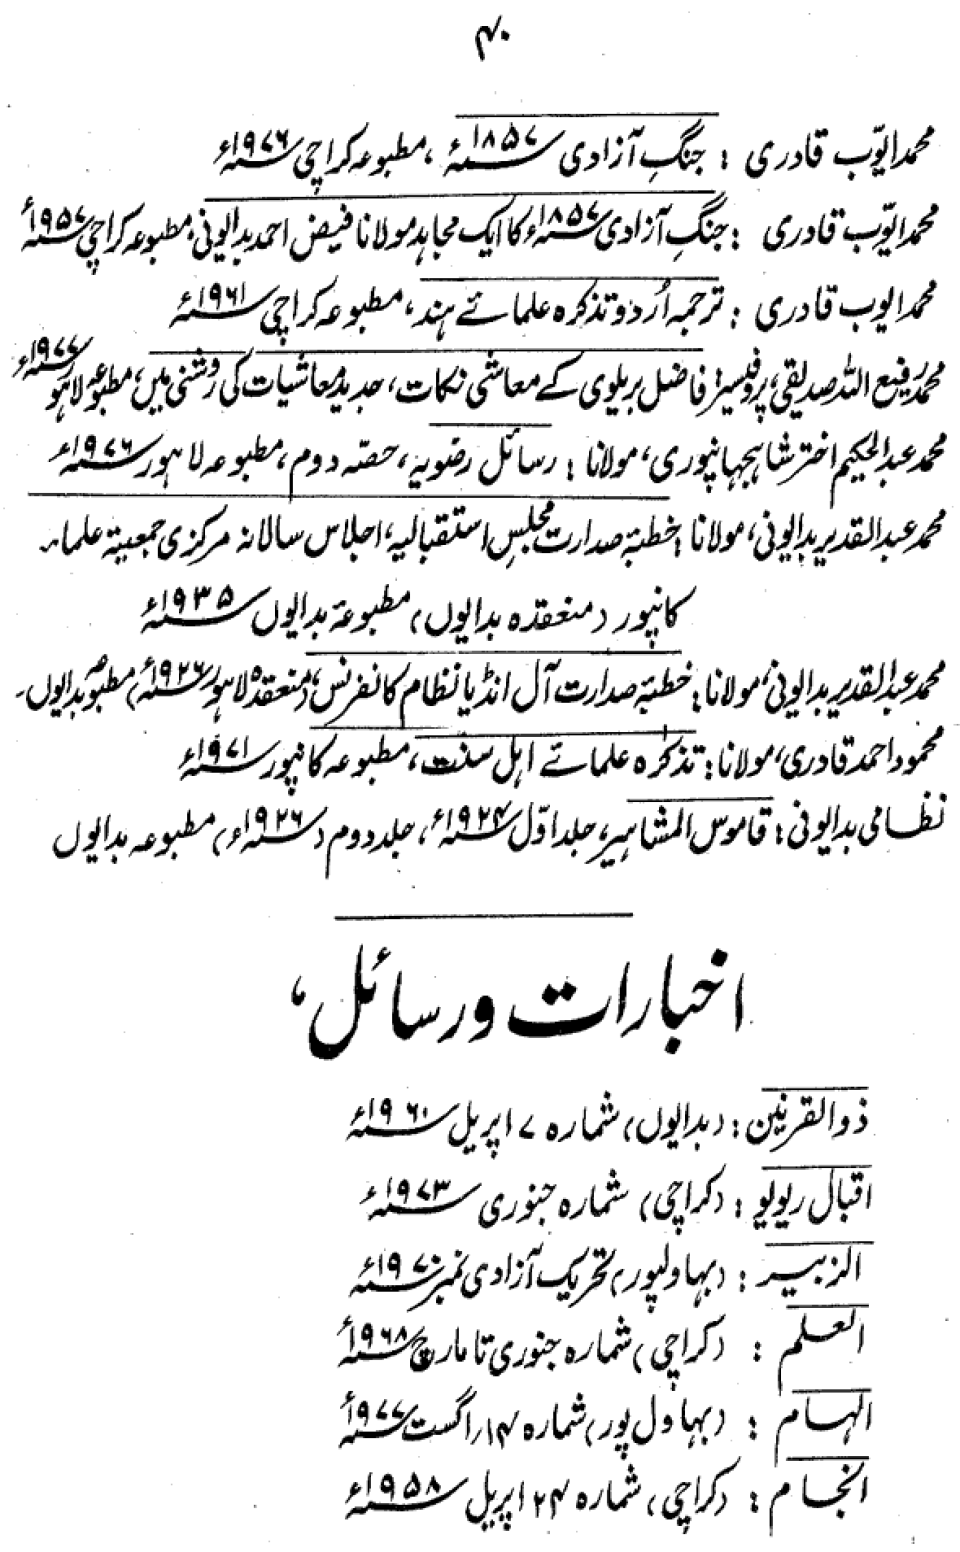 ۴۰
محمد ایوّب قادری : جنگِ آزادی ۱۸۵۷ء ، مطبوعہ کراچی ۱۹۷۶ء
محمد ایوّب قادری : جنگِ آزادی ۱۸۵۷ء کا ایک مجاہد مولانا فیض احمد بدایونی، مطبوعہ کراچی ۱۹۵۷ء
محمد ایوب قادری : ترجمہ اُردو تذکرہ علمائے ہند، مطبوعہ کراچی ۱۹۶۱ء
محمد رفیع اللہ صدیقی، پروفیسر: فاضل بریلوی کے معاشی نکات، جدید معاشیات کی روشنی میں، مطبوعہ لاہور ۱۹۷۷ء
محمد عبدالحکیم اختر شاہجہانپوری، مولانا : رسائل رضویہ، حصّہ دوم، مطبوعہ لاہور ۱۹۷۶ء
محمد عبدالقدیر بدایونی، مولانا : خطبۂ صدارت مجلسِ استقبالیہ، اجلاس سالانہ مرکزی جمعیۃ علماء
کانپور (منعقدہ بدایوں) مطبوعۂ بدایوں ۱۹۳۵ء
محمد عبدالقدیر بدایونی، مولانا : خطبۂ صدارت آل انڈیا نظام کانفرنس، (منعقدہ لاہور ۱۹۲۶ء) مطبوعہ بدایوں۔
محمود احمد قادری، مولانا : تذکرہ علمائے اہل سنّت، مطبوعہ کانپور ۱۹۷۱ء
نظامی بدایونی : قاموس المشاہیر، جلد اوّل ۱۹۲۴ء، جلد دوم (۱۹۲۶ء) مطبوعہ بدایوں
اخبارات و رسائل،
ذوالقرنین : (بدایوں) شمارہ ۷ اپریل ۱۹۶۰ء
اقبال ریویو : (کراچی) شمارہ جنوری ۱۹۷۳ء
الزبیر : (بہاولپور) تحریک آزادی نمبر ۱۹۷۰ء
العلم : (کراچی) شمارہ جنوری تا مارچ ۱۹۶۸ء
الہام : (بہاول پور) شمارہ ۱۴؍ اگست ۱۹۷۷ء
انجام : (کراچی) شمارہ ۲۴ اپریل ۱۹۵۸ء